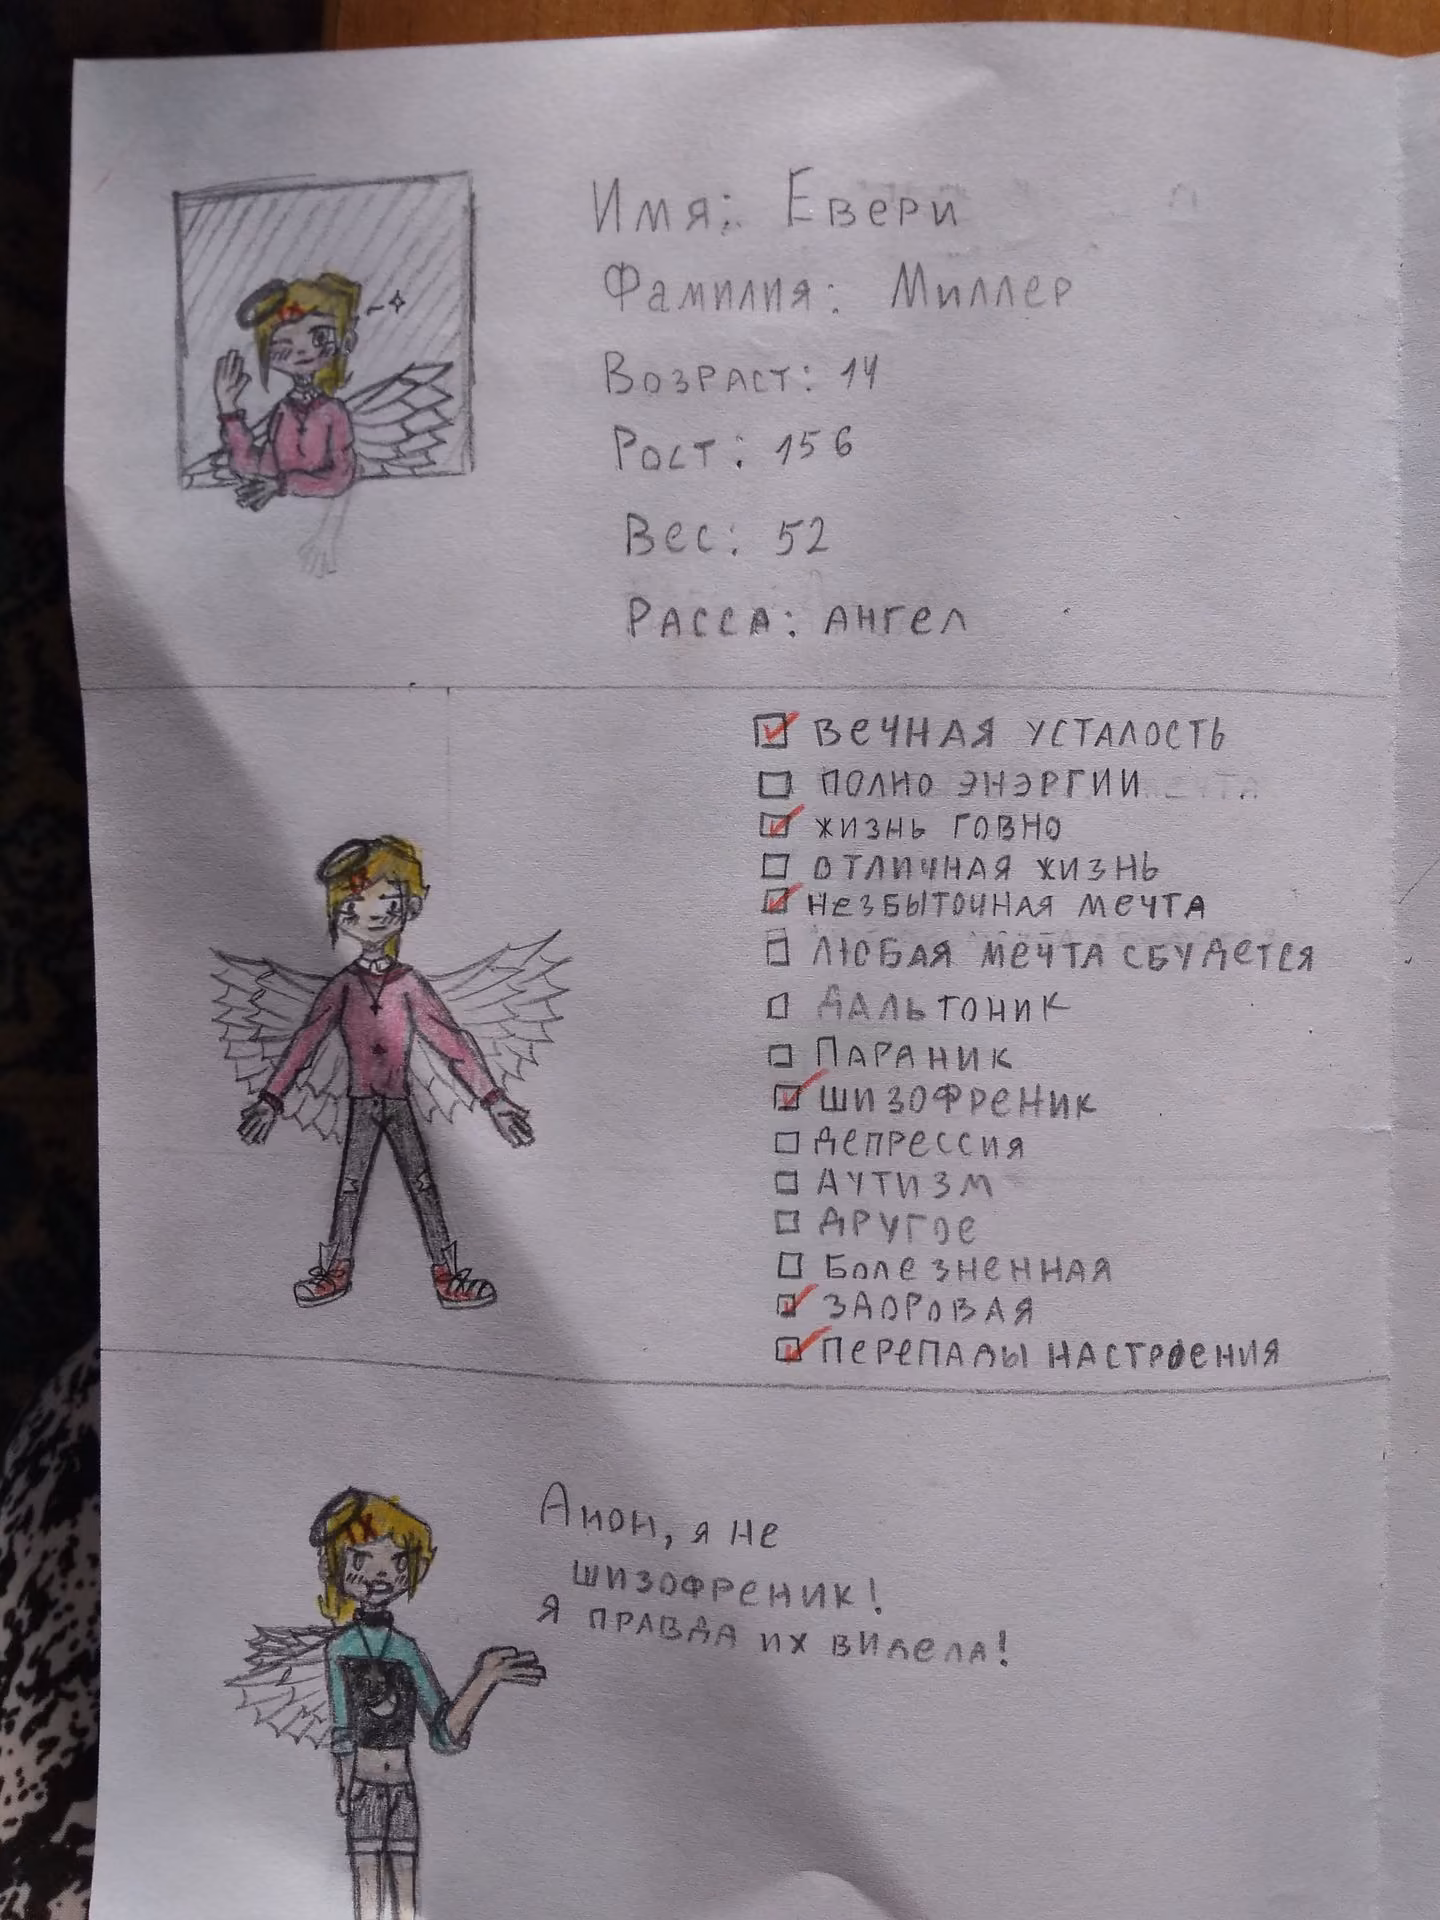 Имя: Евери
Фамилия: Миллер
Возраст: 14
Рост: 156
Вес: 52
Расса: ангел
вечная усталость
полно энэргии
жизнь говно
отличная жизнь
незбыточная мечта
любая мечта сбудется
дальтоник
Параник
шизофреник
депрессия
Аутизм
другое
Болезненная
здоровая
перепады настроения
Анон, я не
шизофреник!
я правда их видела!